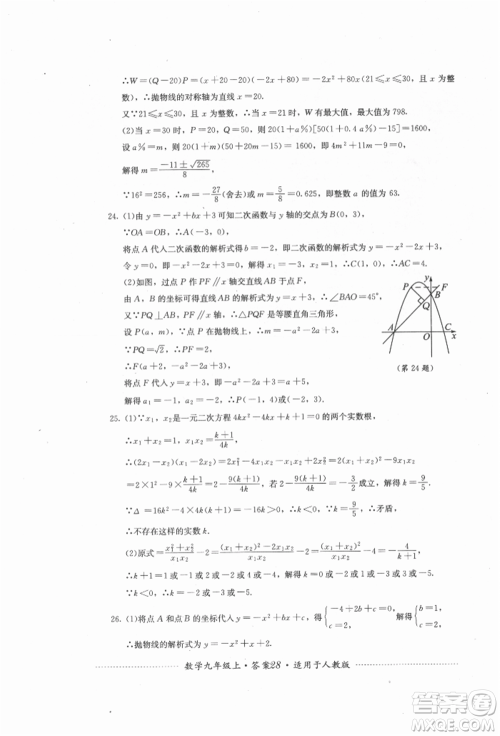 ∴W=(Q-20)P=(x+20-20)(-2x+80)=-2x²+80x(21≤x≤30,且x为整
数),
∴抛物线的对称轴为直线x=20.
又∵21≤x≤30,∴当x=21时,W有最大值,最大值为798.
(2)当x=30时,50(1+a%)[50(1+0.4a%)-15]=1600,
设a%=m,则50(1+m)(20m+35)=1600,即4m²+11m-3=0,
解得m=(-11±√265)/8,
∵16²=256,∴m=-27/8(舍去)或m=5/8=0.625,即整数a的值为63.
24.(1)由y=-x²+bx+3可知二次函数与y轴的交点为B(0,3),
∵OA=OB,∴A(-3,0),
将点A代入二次函数的解析式得b=-2,即y=-x²-2x+3,
令y=0,解得x₁=-3,x₂=1,∴C(1,0).
(2)如图,过点P作PF∥x轴交直线AB于点F,
由A、B的坐标可得直线AB的解析式为y=x+3,∴∠BAO=45°,
又∵PQ⊥AB,PF∥x轴,∴△PQF是等腰直角三角形,
设P(a,m),∵点P在抛物线上,∴m=-a²-2a+3,
∵PQ=√2,∴PF=2,
∴F(a+2,-a²-2a+3),
将点F代入直线AB的解析式得-a²-2a+3=a+2+3,
解得a₁=-1,a₂=-2,∴P(-1,4)或(-2,3).
y
P
F
B
Q
A
O
C
x
(第24题)
25.(1)∵x₁,x₂是一元二次方程4kx²-4kx+k+1=0的两个实数根,
∴x₁+x₂=1,x₁x₂=(k+1)/4k,
∴(2x₁-x₂)(x₁-2x₂)=2x₁²-4x₁x₂-x₁x₂+2x₂²=2(x₁+x₂)²-9x₁x₂
=2×1²-9×(k+1)/4k=2-9(k+1)/4k=-3/2,解得k=9/5,
∵Δ=16k²-4×4k(k+1)=-16k≥0,∴k≤0,∵k=9/5,∴矛盾,
∴不存在这样的实数k.
(2)原式=(x₁²+x₂²)/x₁x₂-2=((x₁+x₂)²-2x₁x₂)/x₁x₂-2=(x₁+x₂)²/x₁x₂-4=-4/(k+1),
∴k+1=1或-1或2或-2或4或-4,
解得k=0或-2或1或-3或3或-5.
∵k<0,∴k=-2或-3或-5.
26.(1)将点A和点B的坐标代入y=-x²+bx+c,得{-4+2b+c=0,c=4,解得{b=0,c=4,
∴抛物线的解析式为y=-x²+4.
数学九年级上·答案28·适用于人教版